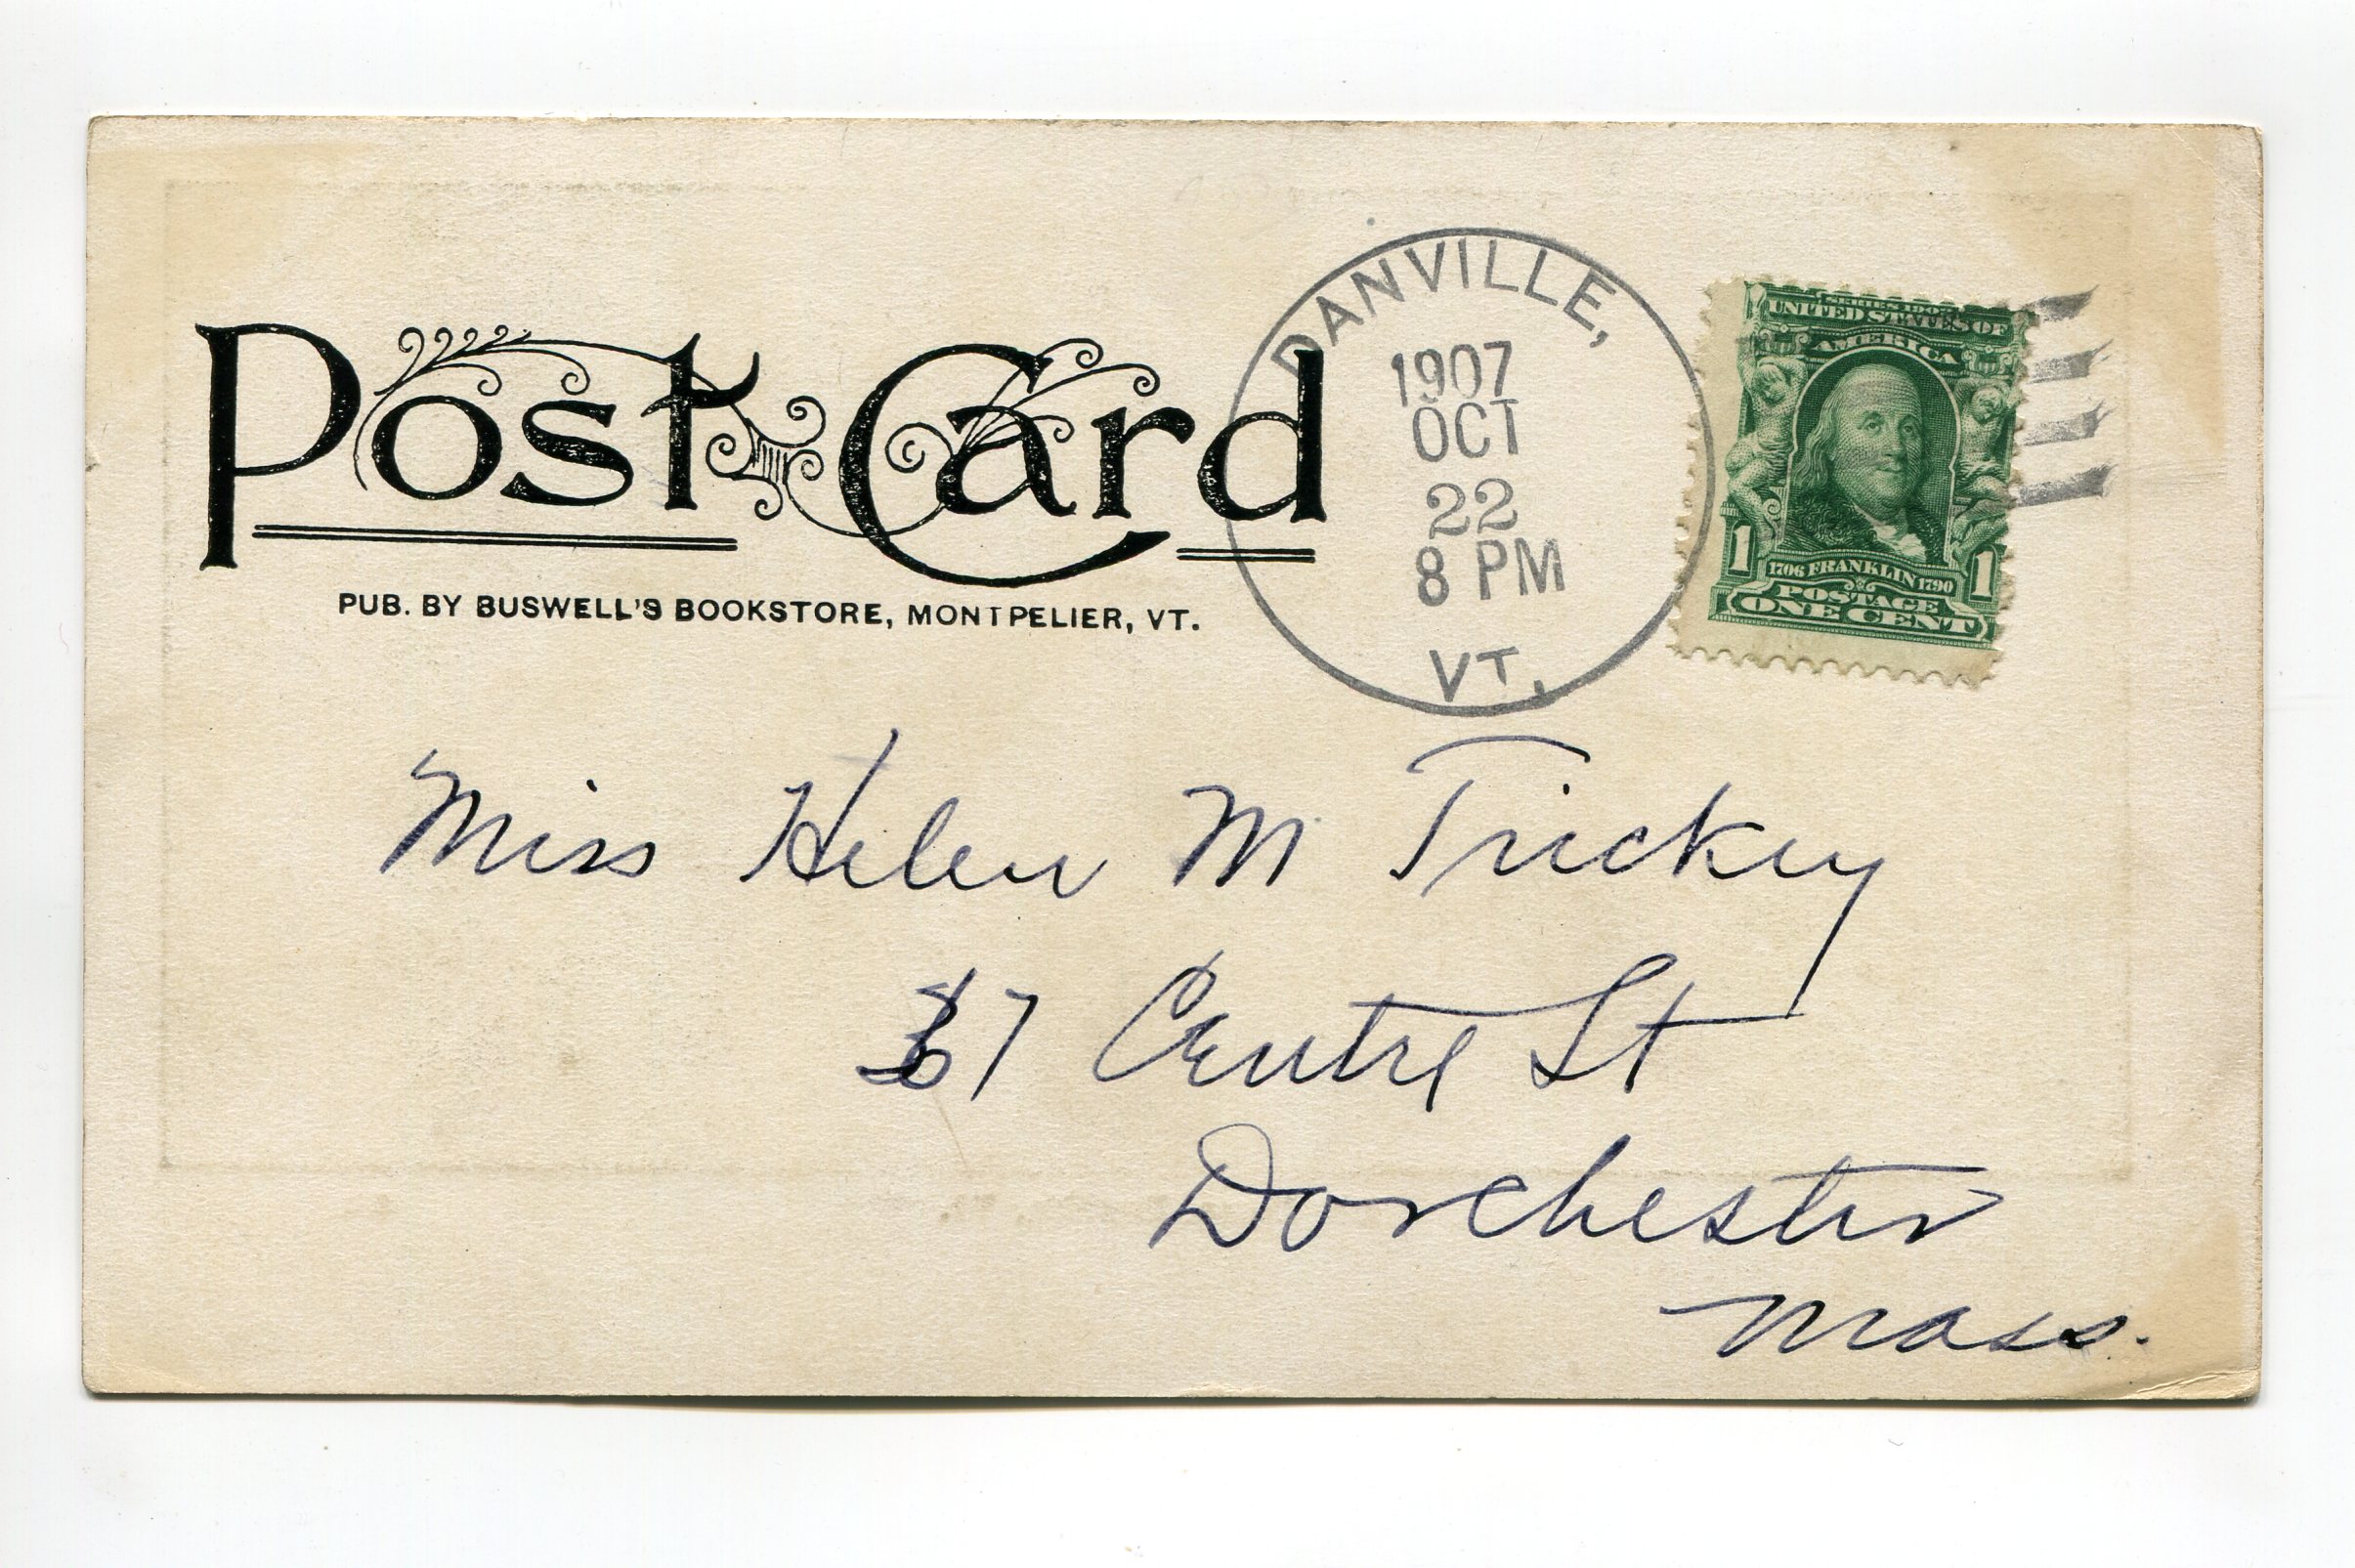 Post Card
PUB. BY BUSWELL'S BOOKSTORE, MONTPELIER, VT.
DANVILLE,
1907
OCT
22
8 PM
VT.
SERIES 1902
UNITED STATES OF
AMERICA
1706 FRANKLIN 1790
1 1
POSTAGE
ONE CENT
Miss Helen M Trickey
Centre St
Dorchester
Mass.